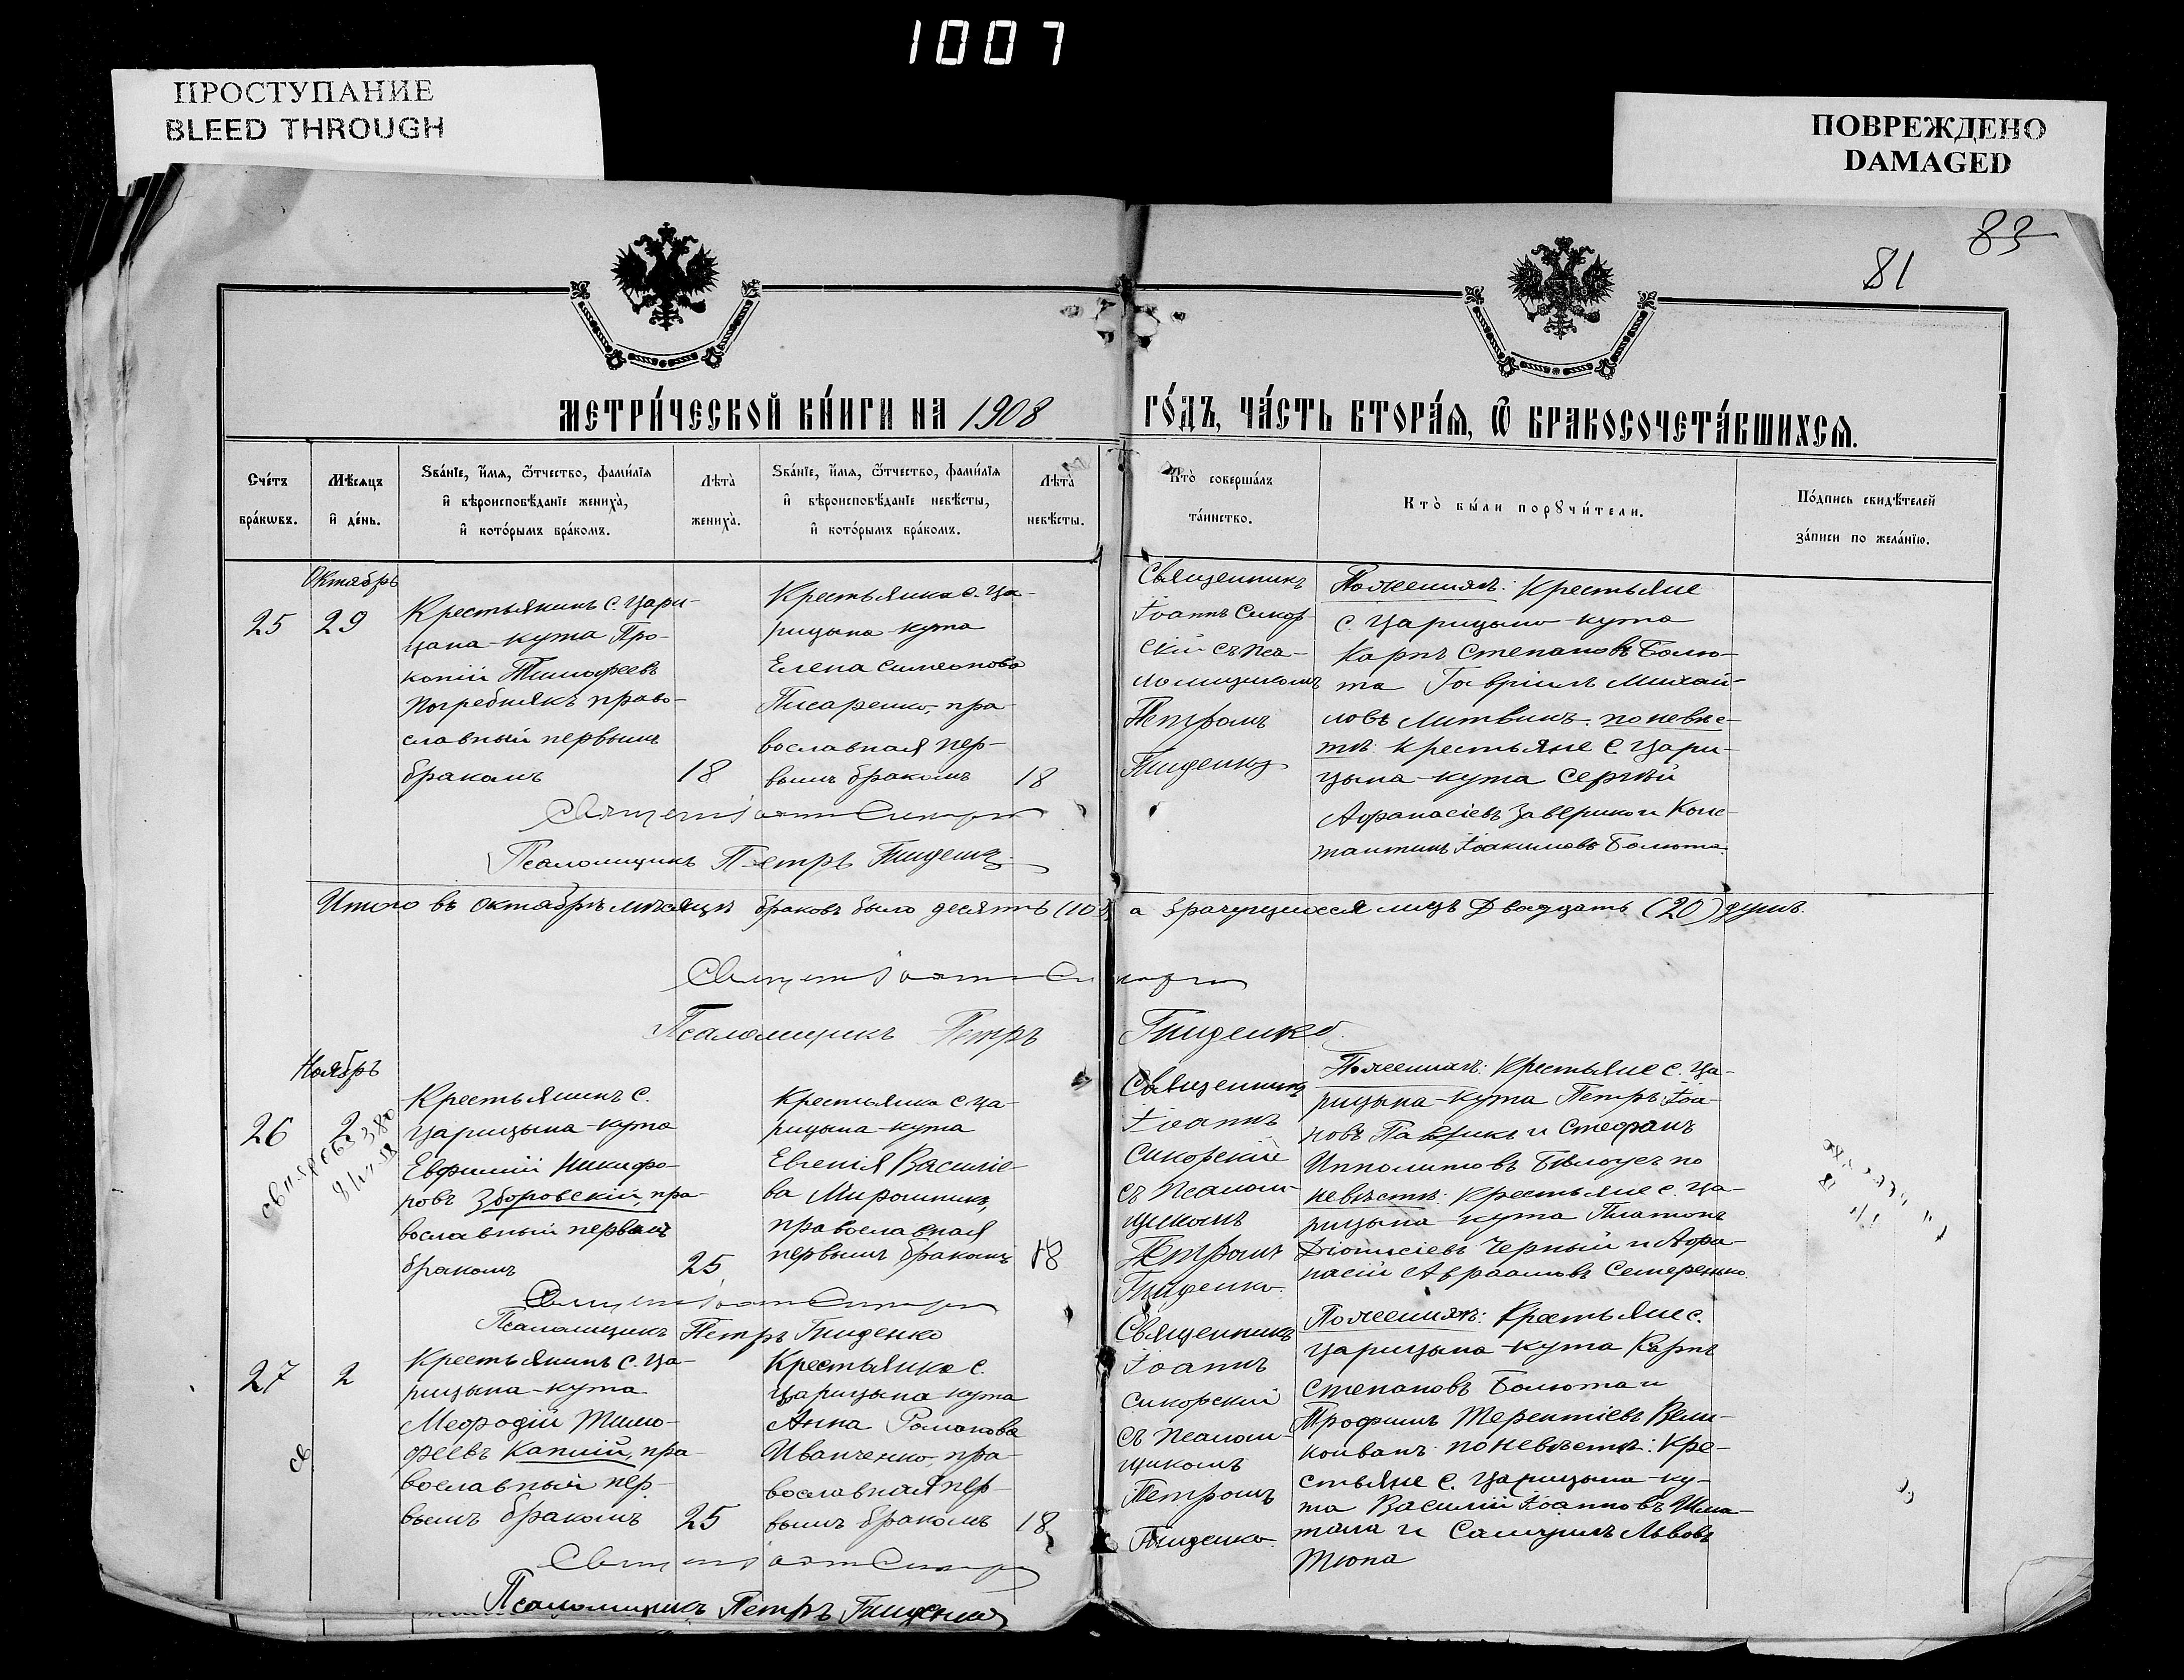 1007
ПРОСТУПАНИЕ
BLEED THROUGH
ПОВРЕЖДЕНО
DAMAGED
83
81
МЕТРИ́ЧЕСКОЙ КНИ́ГИ НА 1908 ГО́ДЪ, ЧА́СТЬ ВТОРА́Ѧ, Ѽ БРАКОСОЧЕТА́ВШИХСѦ.
Сче́тъ бра́кѡвъ.
Мѣ́сѧцъ и҆ де́нь.
Ѕва́нїе, и҆́мѧ, ѻ҆́тчество, фами́лїѧ
и҆ вѣроисповѣ́данїе жениха̀,
и҆ кото́рымъ бра́комъ.
Лѣта̀ жениха̀.
Ѕва́нїе, и҆́мѧ, ѻ҆́тчество, фами́лїѧ
и҆ вѣроисповѣ́данїе невѣ́сты,
и҆ кото́рымъ бра́комъ.
Лѣта̀ невѣ́сты.
Кто̀ соверша́лъ
та́инство.
Кто̀ бы́ли порꙋчи́тели.
По́дпись свидѣ́телей
за́писи по жела́нїю.
Октябрь
25
29
Крестьянинъ с. Цари-
цына-кута Про-
копій Тимофеевъ
Погребнякъ право-
славный первымъ
бракомъ
18
Крестьянка с. Ца-
рицына-кута
Елена Симеонова
Писаренко, пра-
вославная пер-
вымъ бракомъ
18
Священникъ
Іоаннъ Сикор-
скій съ пса-
ломщикомъ
Петромъ
Гниденко
По женихѣ: Крестьяне
с. Царицына-кута
Карпъ Степановъ Болю-
та Гавріилъ Михай-
ловъ Литвинъ. по невѣс-
тѣ: крестьяне с. Цари-
цына-кута Сергѣй
Афанасіевъ Заверико и Конс-
тантинъ Іоакимовъ Болюта.
Псаломщикъ Петръ Гниденко
Итого въ октябрѣ мѣсяцѣ браковъ было десять (10), а брачущихся лицъ двадцать (20) душъ.
Псаломщикъ Петръ Гниденко
Ноябрь
26
2
Крестьянинъ с.
Царицына-кута
Евфимій Никифо-
ровъ Зборовскій, пра-
вославный первымъ
бракомъ
25
Крестьянка с. Ца-
рицына-кута
Евгенія Василіе-
ва Мирошникъ,
православная
первымъ бракомъ
18
Священникъ
Іоаннъ
Сикорскій
съ псалом-
щикомъ
Петромъ
Гниденко
По женихѣ: Крестьяне с. Ца-
рицына-кута Петръ Іоа-
новъ и Стефанъ
Ипполитовъ Бѣлоусъ по
невѣстѣ: Крестьяне с. Ца-
рицына-кута Платонъ
Діонисіевъ Черный и Афа-
насій Авраамовъ Семеренко.
Псаломщикъ Петръ Гниденко
27
2
Крестьянинъ с. Ца-
рицына-кута
Мефодій Тимо-
феевъ Капній, пра-
вославный пер-
вымъ бракомъ
25
Крестьянка с.
Царицына кута
Анна Романова
Иванченко, пра-
вославная пер-
вымъ бракомъ
18
Священникъ
Іоаннъ
Сикорскій
съ псалом-
щикомъ
Петромъ
Гниденко.
По женихѣ: Крестьяне с.
Царицына-кута Карпъ
Степановъ Болюта и
Трофимъ Терентіевъ Вели-
коиванъ. по невѣстѣ: Кре-
стьяне с. Царицына-ку-
та Василій Іоанновъ Шма-
тала и Самуилъ Львовъ
Тюпа
Псаломщикъ Петръ Гниденко